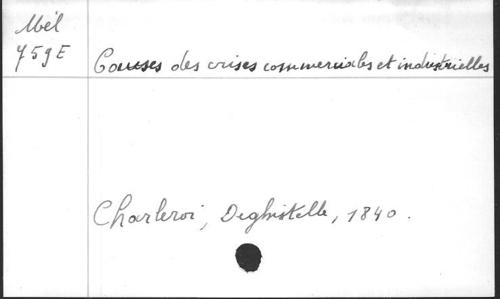 Mél
759E
Causes des crises commerciales et industrielles
Charleroi, Deghistelle, 1840.